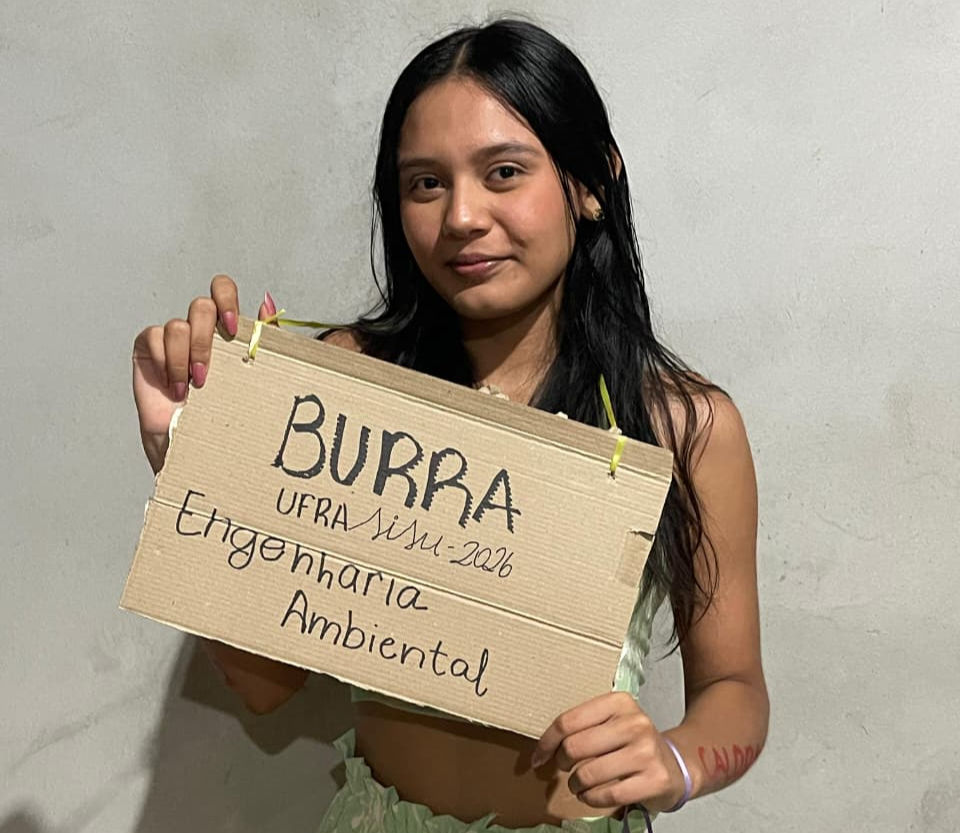 BURRA
UFRA SiSU-2026
Engenharia
Ambiental